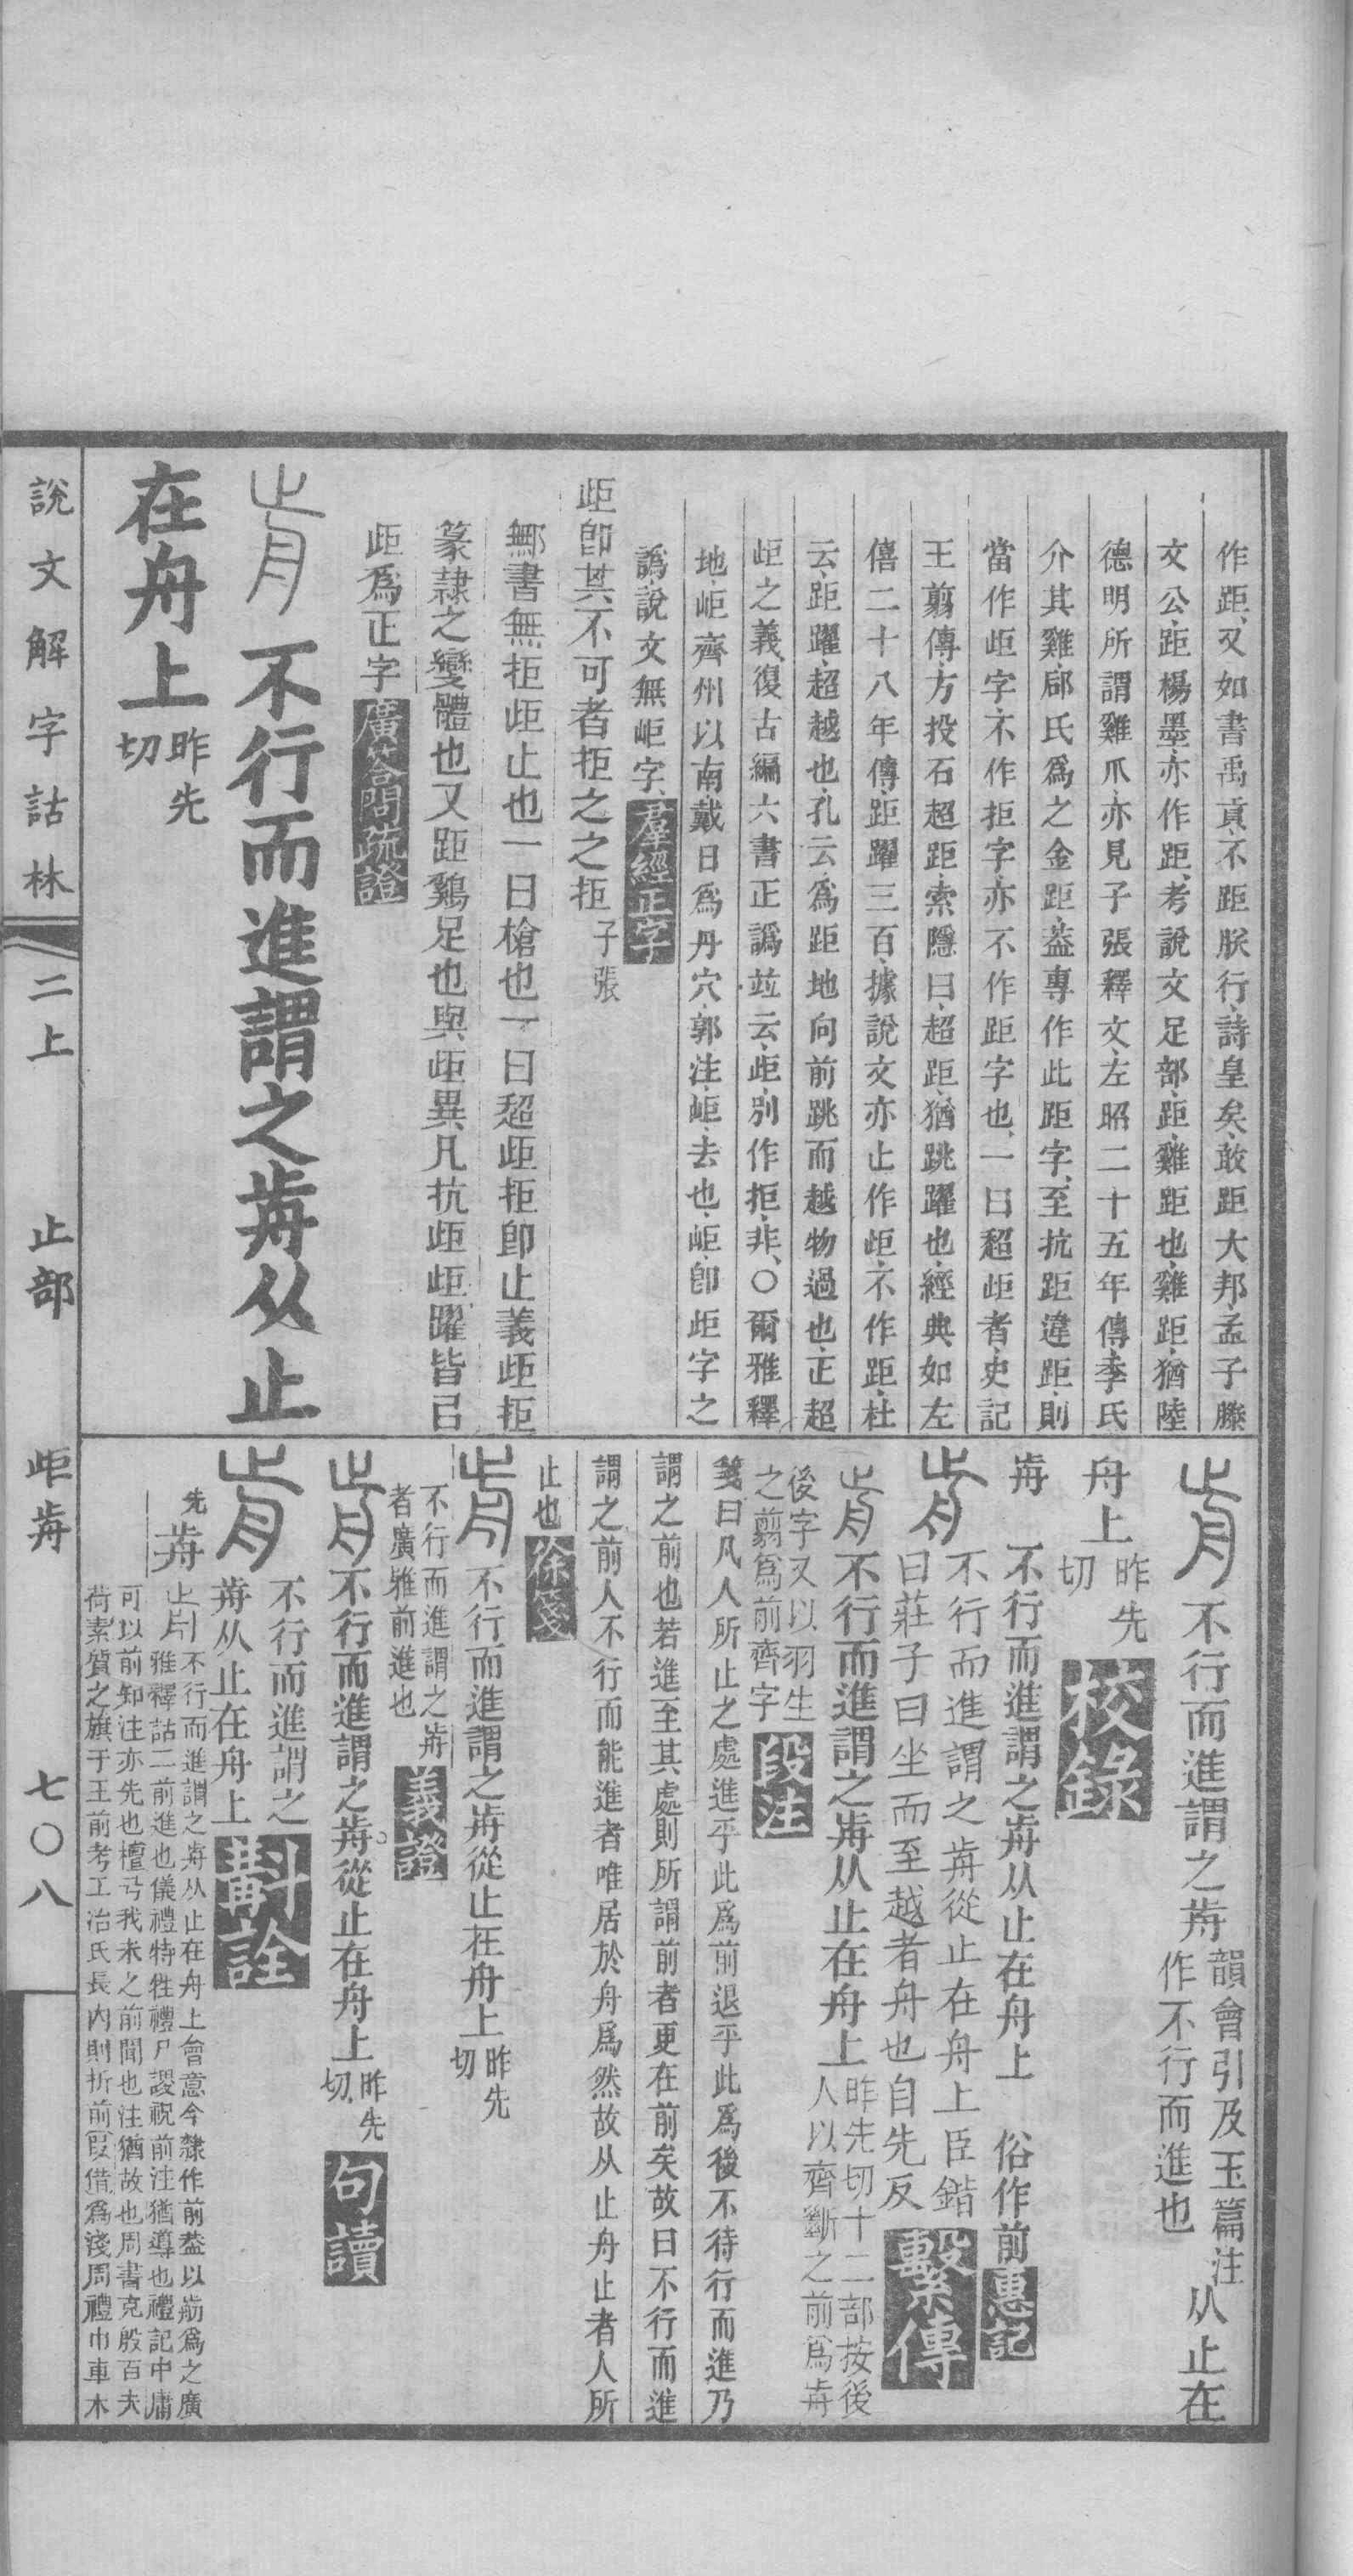 作距、又如書禹貢、不距朕行、詩皇矣、敢距大邦、孟子滕
文公、距楊墨、亦作距、考說文足部、距、雞距也、雞距、猶陸
德明所謂雞爪、亦見子張釋文、左昭二十五年傳、季氏
介其雞、郈氏爲之金距、葢專作此距字、至抗距違距、則
當作岠字、不作拒字、亦不作距字也、一曰超岠者、史記
王翦傳、方投石超距、索隱曰、超距、猶跳躍也、經典如左
僖二十八年傳、距躍三百、據說文亦止作岠、不作距、杜
云、距躍、超越也、孔云、爲距地向前跳而越物過也、正超
岠之義、復古編六書正譌竝云、岠、別作拒、非、〇爾雅釋
地、岠齊州以南、戴日爲丹穴、郭注、岠、去也、岠、卽岠字之
譌、說文無岠字、羣經正字
岠卽其不可者拒之之拒子張
鄦書無拒岠止也一曰槍也一曰超岠拒卽止義岠拒
篆隷之變體也又距鷄足也與岠異凡抗岠岠躍皆已
岠爲正字廣荅問疏證
不行而進謂之歬从止
在舟上昨先切
說文解字詁林 二上 止部 岠歬 七〇八
不行而進謂之歬韻會引及玉篇注作不行而進也从止在
舟上昨先切 校錄
歬 不行而進謂之歬从止在舟上 俗作前惠記
不行而進謂之歬從止在舟上臣鍇
曰莊子曰坐而至越者舟也自先反 繫傳
不行而進謂之歬从止在舟上昨先切十二部按後人以齊斷之前爲歬
後字又以羽生之翦爲前齊字 段注
箋曰凡人所止之處進乎此爲前退乎此爲後不待行而進乃
謂之前也若進至其處則所謂前者更在前矣故曰不行而進
謂之前人不行而能進者唯居於舟爲然故从止舟止者人所
止也徐箋
不行而進謂之歬從止在舟上昨先切
不行而進謂之歬者廣雅前進也 義證
不行而進謂之歬從止在舟上昨先切 句讀
不行而進謂之
歬从止在舟上 斠詮
先 歬 不行而進謂之歬从止在舟上會意今隸作前葢以剪爲之廣
雅釋詁二前進也儀禮特牲禮尸謖祝前注猶導也禮記中庸
可以前知注亦先也檀弓我未之前聞也注猶故也周書克殷百夫
荷素質之旗于王前考工冶氏長內則折前叚借爲淺周禮巾車木